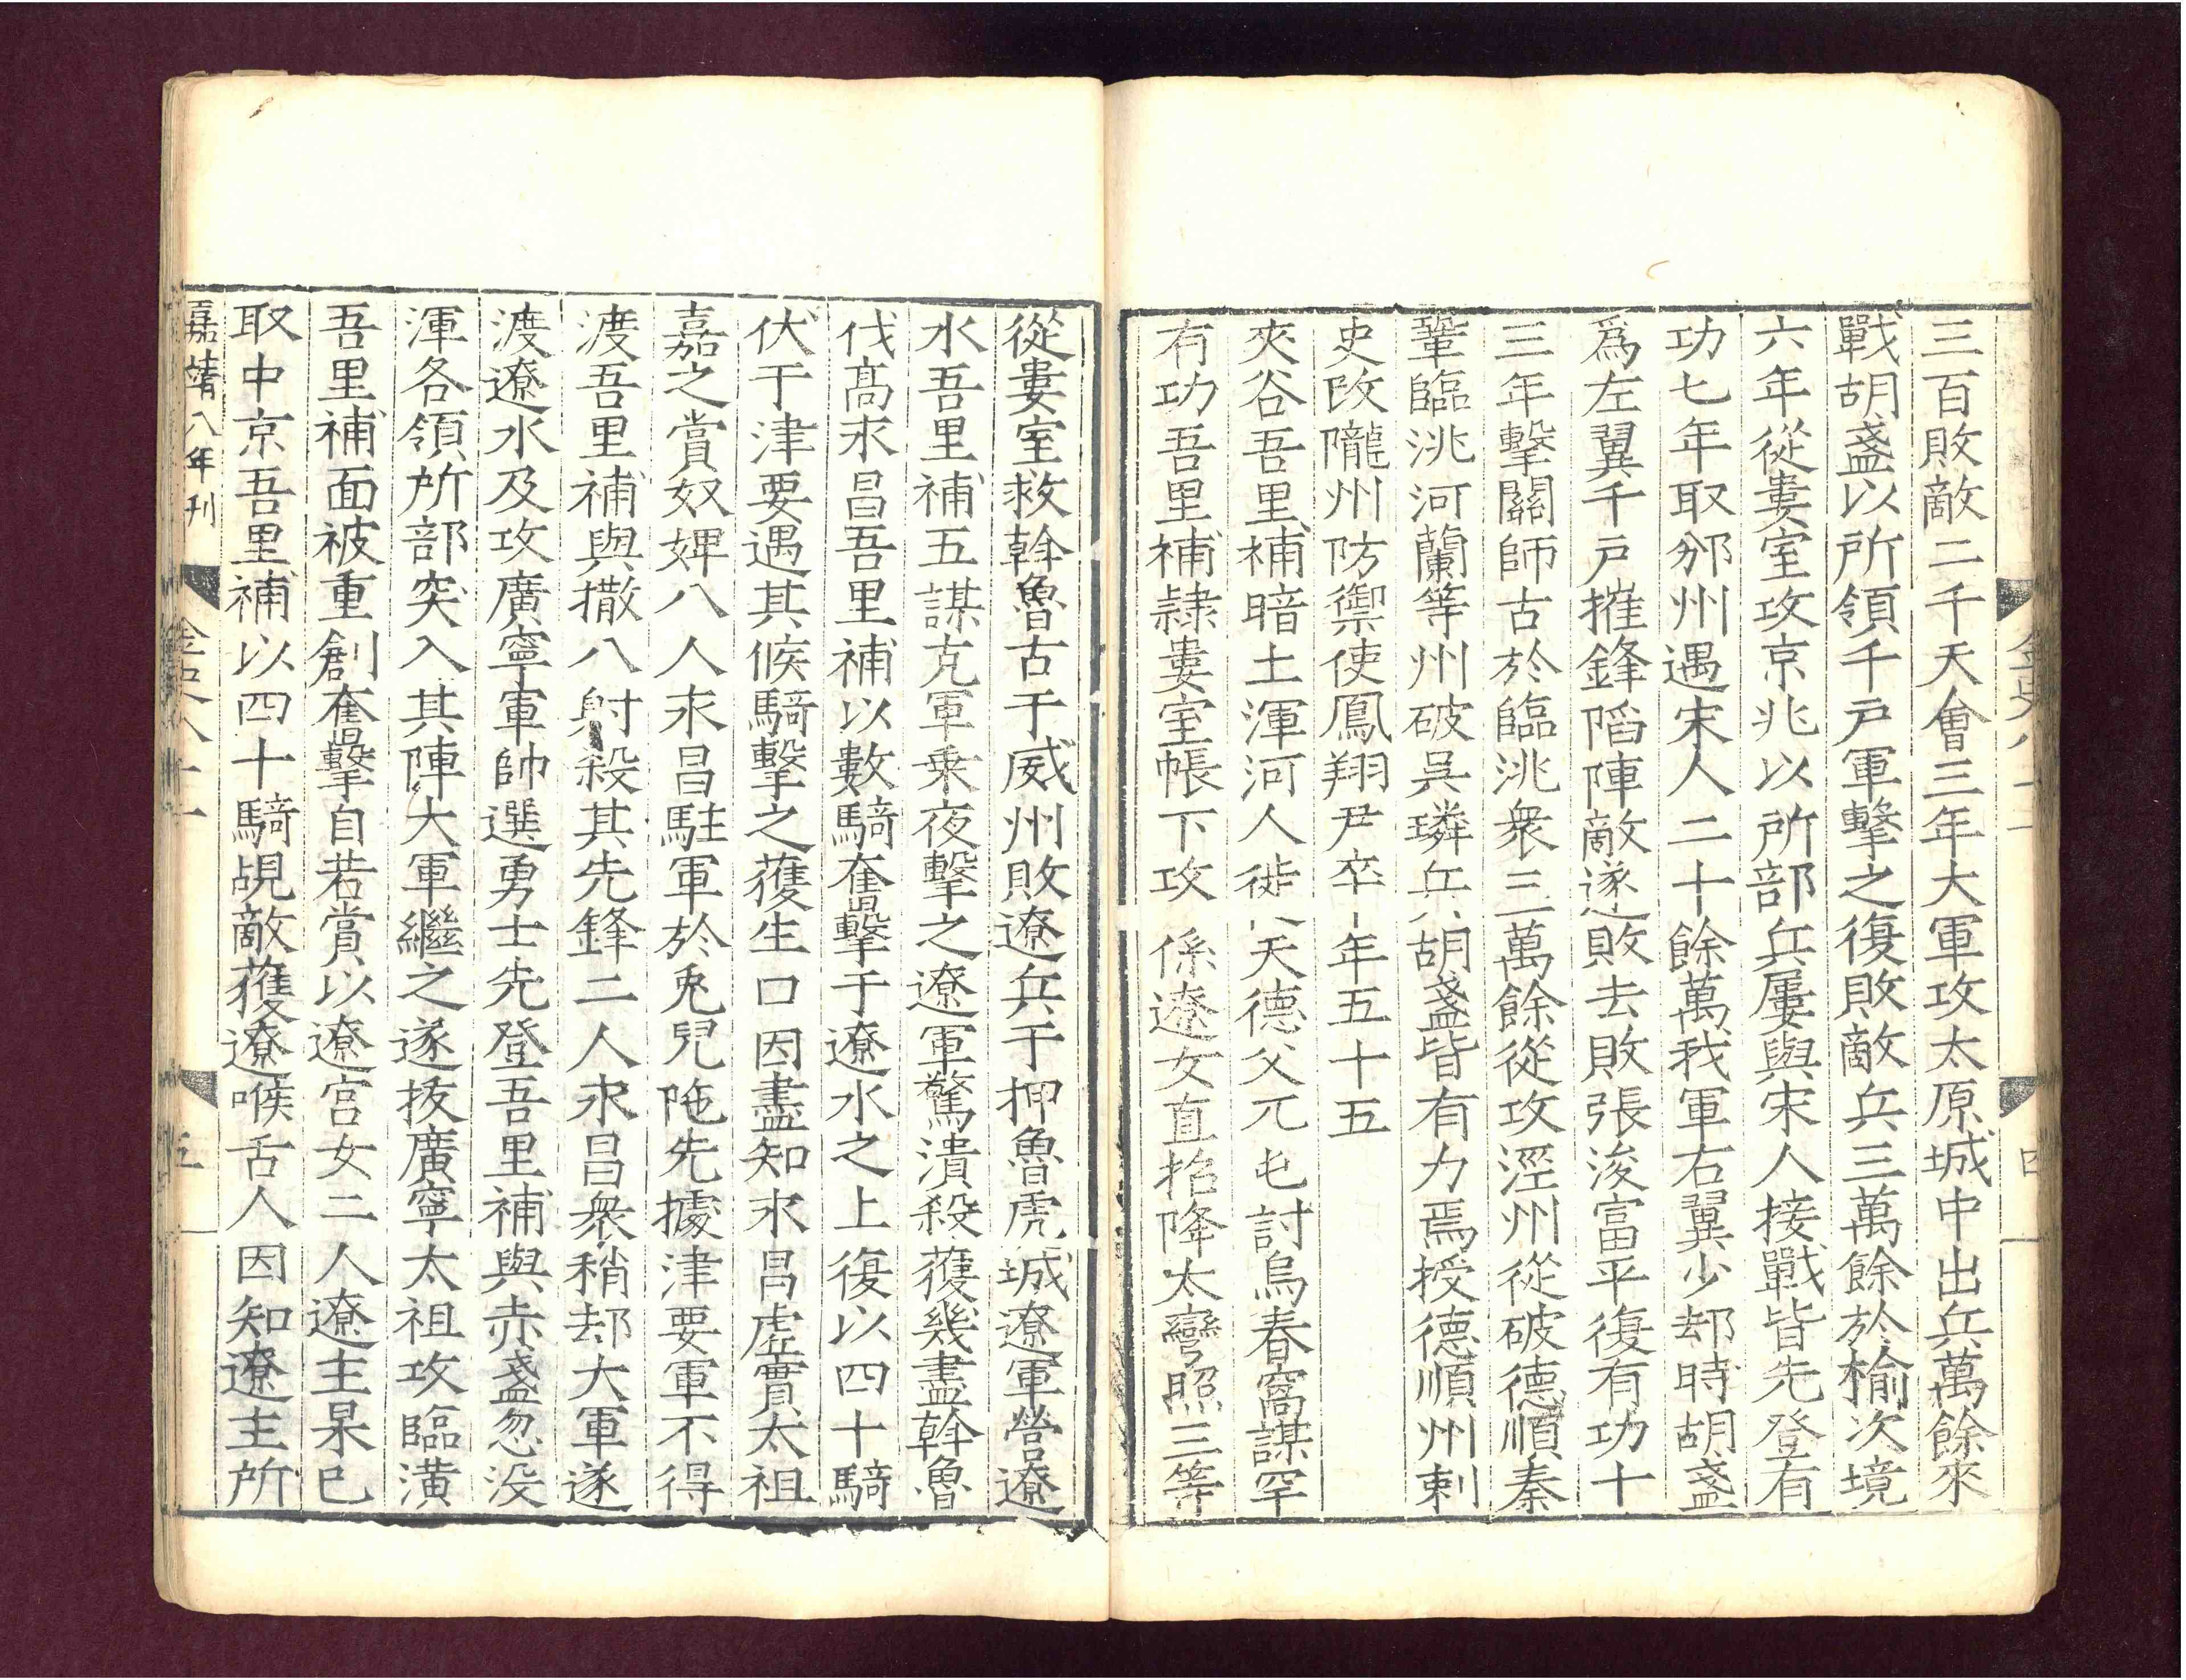 三百敗敵二千天會三年大軍攻太原城中出兵萬餘來
戰胡盞以所領千戸軍擊之復敗敵兵三萬餘於榆次境
六年從婁室攻京兆以所部兵屢與宋人接戰皆先登有
功七年取邠州遇宋人二十餘萬我軍右翼少却時胡盞
爲左翼千戸摧鋒陷陣敵遂敗去敗張浚富平復有功十
三年擊關師古於臨洮衆三萬餘從攻涇州從破德順秦
鞏臨洮河蘭等州破吳璘兵胡盞皆有力焉授德順州剌
史改隴州防禦使鳳翔尹卒年五十五
夾谷吾里補暗土渾河人徙天德父兀屯討烏春窩謀罕
有功吾里補隷婁室帳下攻係遼女直招降太彎照三等
金史八十一
四
從婁室救斡魯古于咸州敗遼兵于押魯虎城遼軍營遼
水吾里補五謀克軍乗夜擊之遼軍驚潰殺獲幾盡斡魯
伐髙永昌吾里補以數騎奮擊于遼水之上復以四十騎
伏于津要遇其候騎擊之獲生口因盡知永昌虛實太祖
嘉之賞奴婢八人永昌駐軍於兎兒陁先據津要軍不得
渡吾里補與撒八射殺其先鋒二人永昌衆稍却大軍遂
渡遼水及攻廣寧軍帥選勇士先登吾里補與赤盞忽没
渾各領所部突入其陣大軍繼之遂拔廣寧太祖攻臨潢
吾里補面被重創奮擊自若賞以遼宫女二人遼主杲已
取中京吾里補以四十騎覘敵獲遼喉舌人因知遼主所
嘉靖八年刊
金史八十一
五